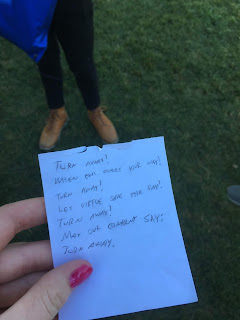 TURN AWAY!
WHEN EVIL COMES YOUR WAY!
TURN AWAY!
LET VIRTUE SAVE THE DAY!
TURN AWAY!
MAY OUR COMMENT SAY:
TURN AWAY.